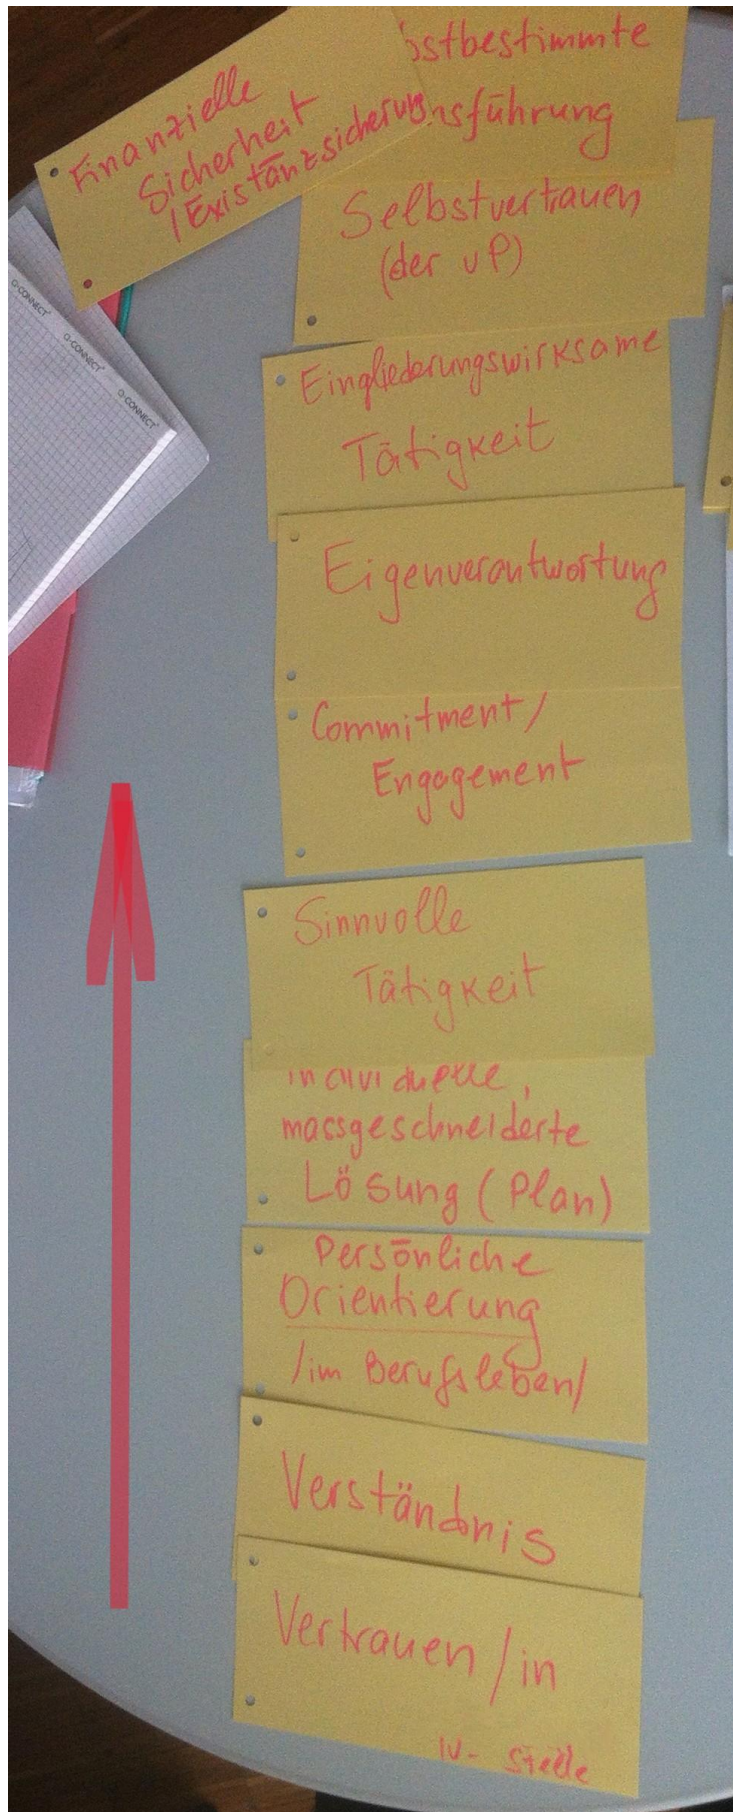 Finanzielle
Sicherheit
/Existänzsicherung
bstbestimmte
nsführung
Selbstvertrauen
(der vP)
Q-CONNECT
Q-CONNECT
Q-CONNECT
Eingliederungswirksame
Tätigkeit
Eigenverantwortung
Commitment/
Engagement
Sinnvolle
Tätigkeit
individuelle,
massgeschneiderte
Lösung (Plan)
Persönliche
Orientierung
/im Berufsleben/
Verständnis
Vertrauen/in
IV- Stelle